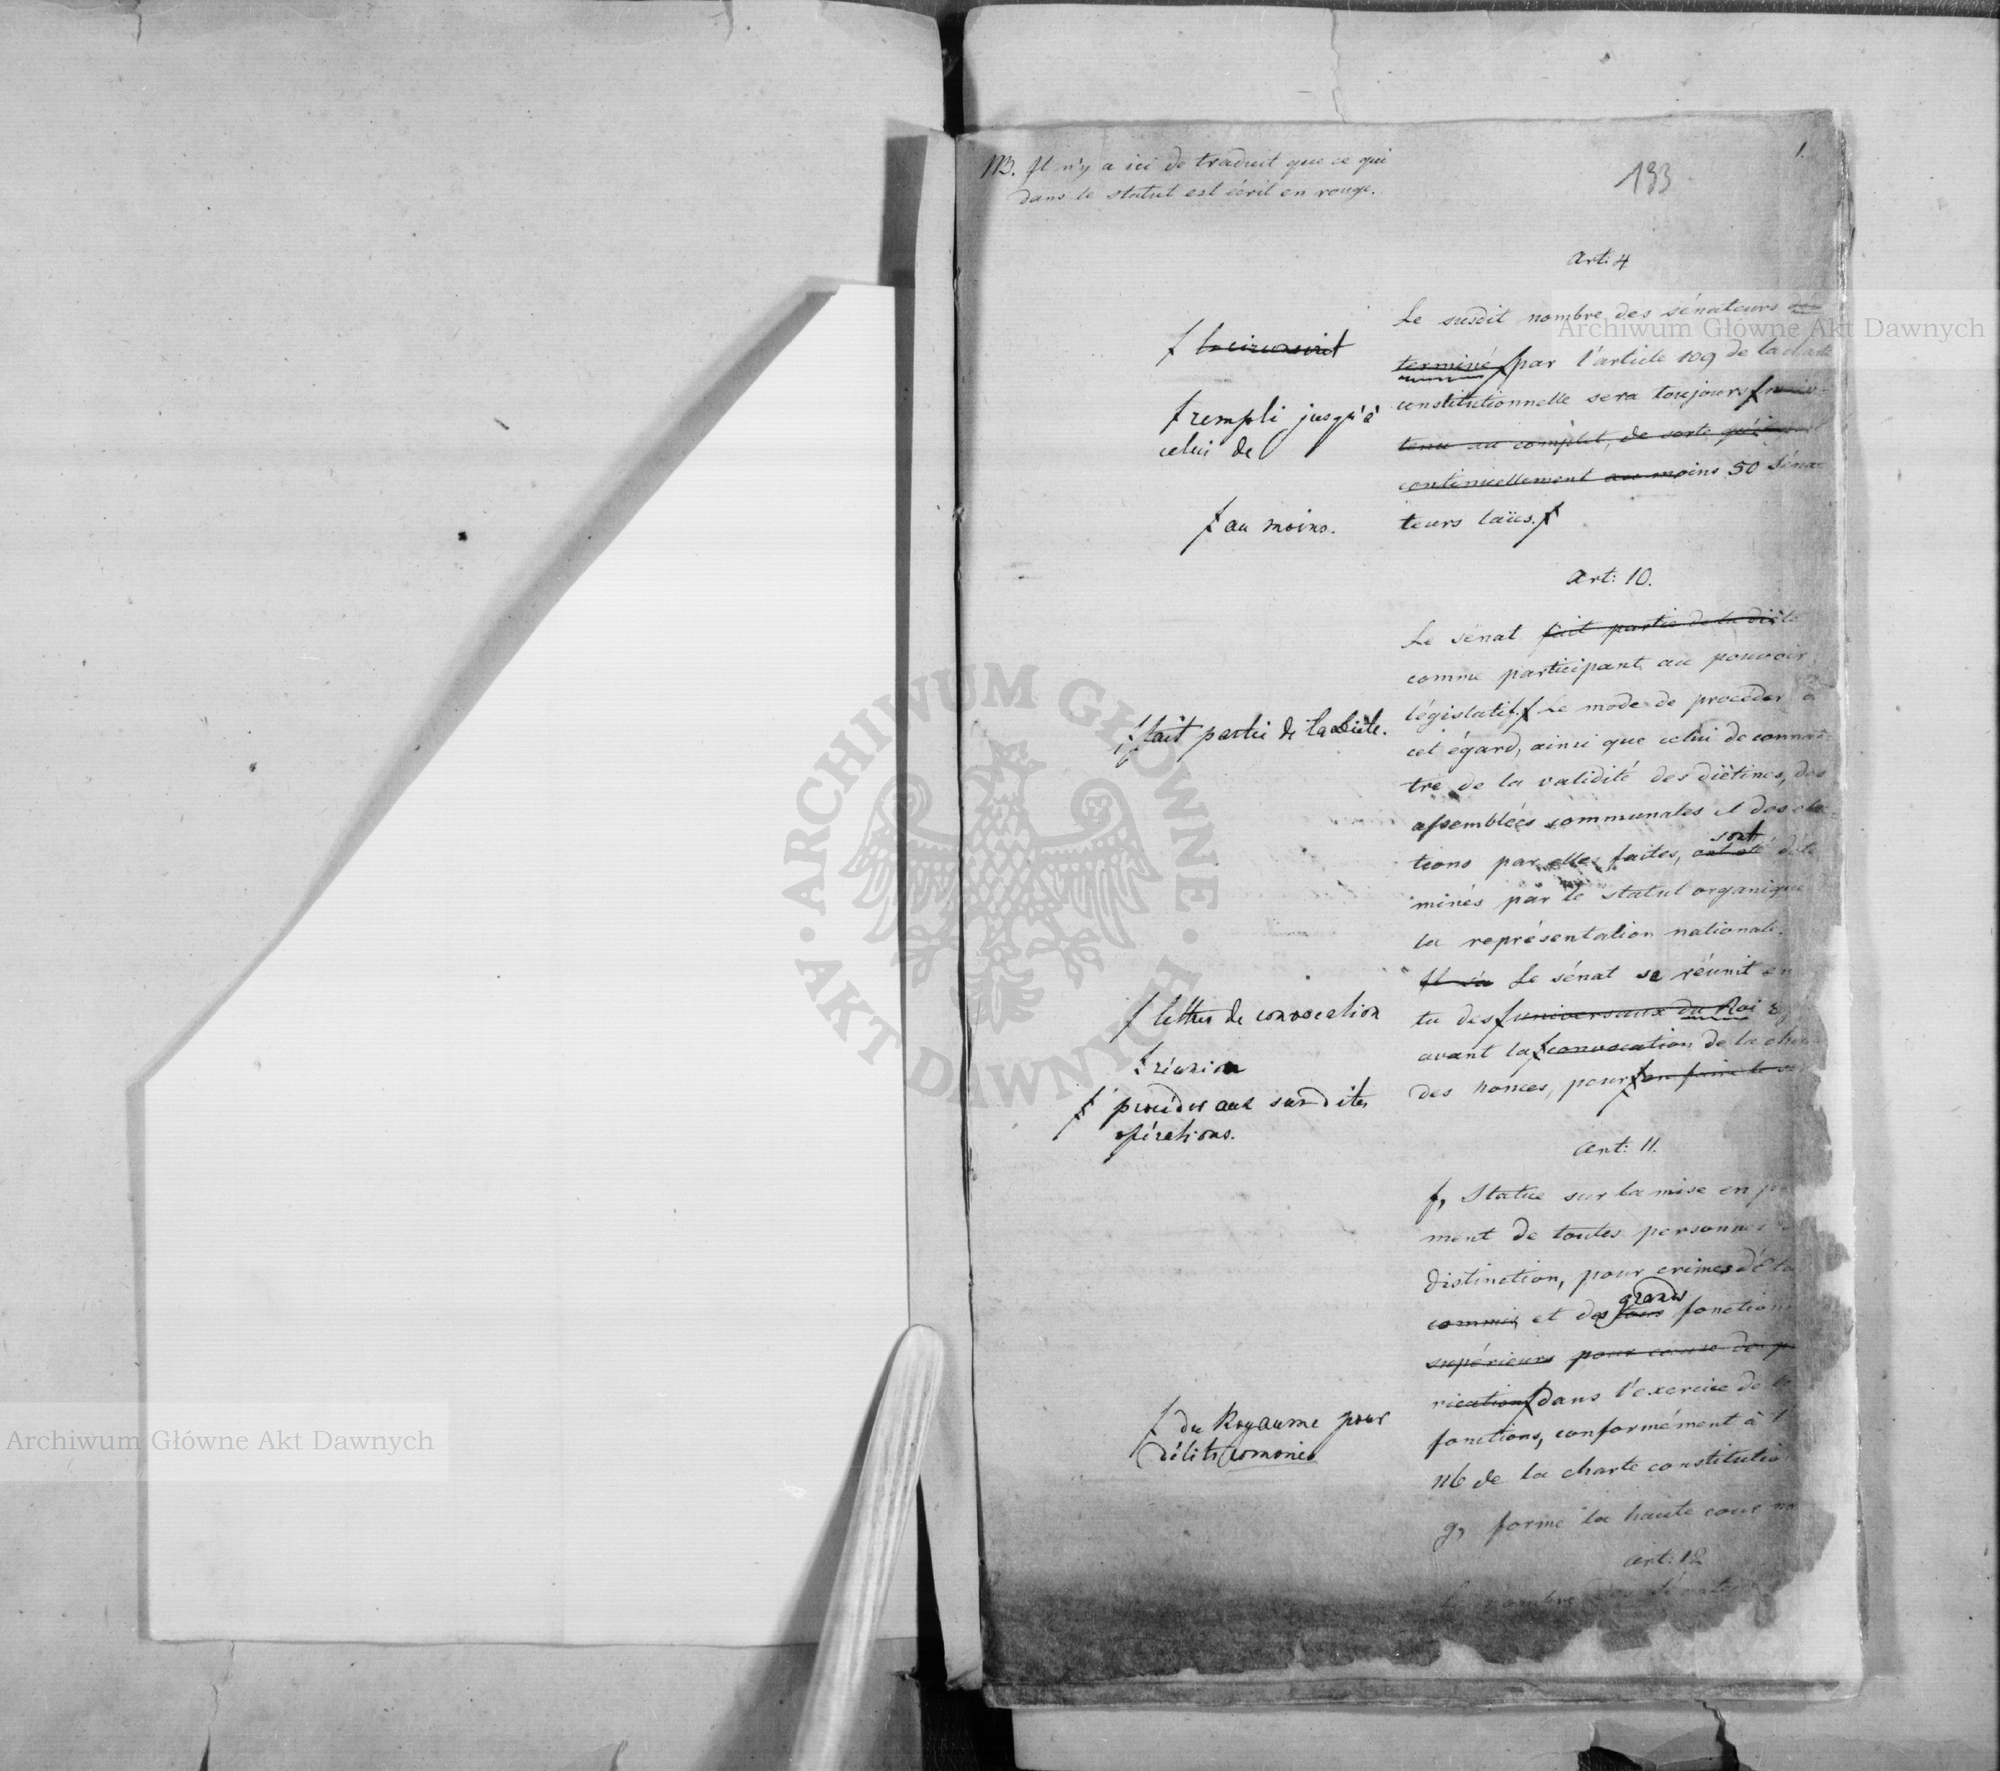 NB. Il n'y a ici de traduit que ce qui
dans le statut est écrit en rouge.
1.
193
Art: 4
Le susdit nombre des sénateurs dé-
terminé ƒ par l'article 109 de la charte
constitutionnelle sera toujours ƒ main-
tenu au complet, de sorte qu'il
continuellement au moins 50 Séna-
teurs laïcs. ƒ
ƒ la circonscrit
ƒ rempli jusqu'à
celui de
ƒ au moins.
Art: 10.
Le sénat fait partie de la diète
comme participant au pouvoir
législatif. ƒ Le mode de procéder à
cet égard, ainsi que celui de connaî-
tre de la validité des diétines, des
assemblées communales et des élec-
tions par elles faites, sont ont été déter-
minés par le statut organique
la représentation nationale.
Il s'a Le sénat se réunit en
tu des ƒ universaux du Roi
avant la ƒ convocation de la
des nonces, pour ƒ en faire le
ƒ fait partie de la diète.
ƒ lettres de convocation
ƒ réunion
ƒ procéder aux susdites
opérations.
Art: 11.
f, Statue sur la mise en
ment de toutes personnes
distinction, pour crimes d'État
commis, et des grands tous fonction
supérieurs pour cause de
rication ƒ dans l'exercice de
fonctions, conformément à
116 de la charte constitution
g, forme la haute cour
ƒ du Royaume pour
délits commis
Art: 12
Le nombre des Sénateurs
Archiwum Główne Akt Dawnych
Archiwum Główne Akt Dawnych
ARCHIWUM GŁÓWNE · AKT DAWNYCH ·